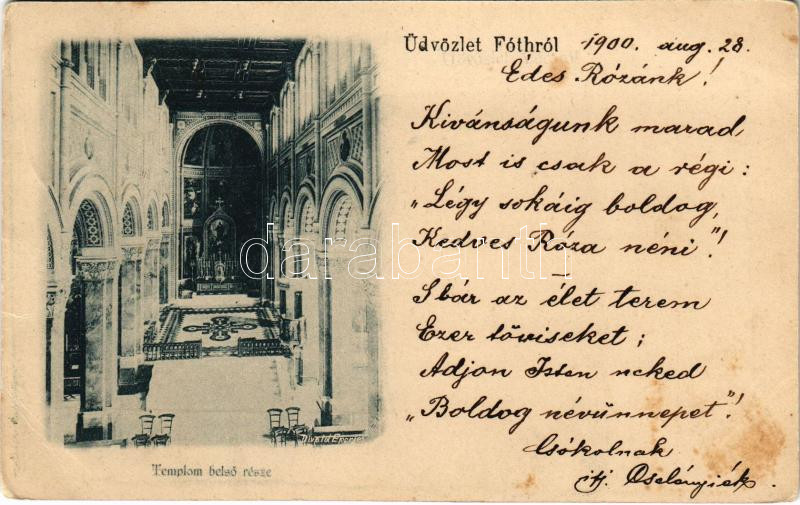 Üdvözlet Fóthról 1900. aug. 28.
Édes Rózánk!
Kivánságunk marad
Most is csak a régi:
„Légy sokáig boldog,
Kedves Róza néni"!
—
S bár az élet terem
Ezer töviseket;
Adjon Isten neked
„Boldog névünnepet"!
Csókolnak
ifj. Oselényiék
darabanth
Divald Eperjes
Templom belső része